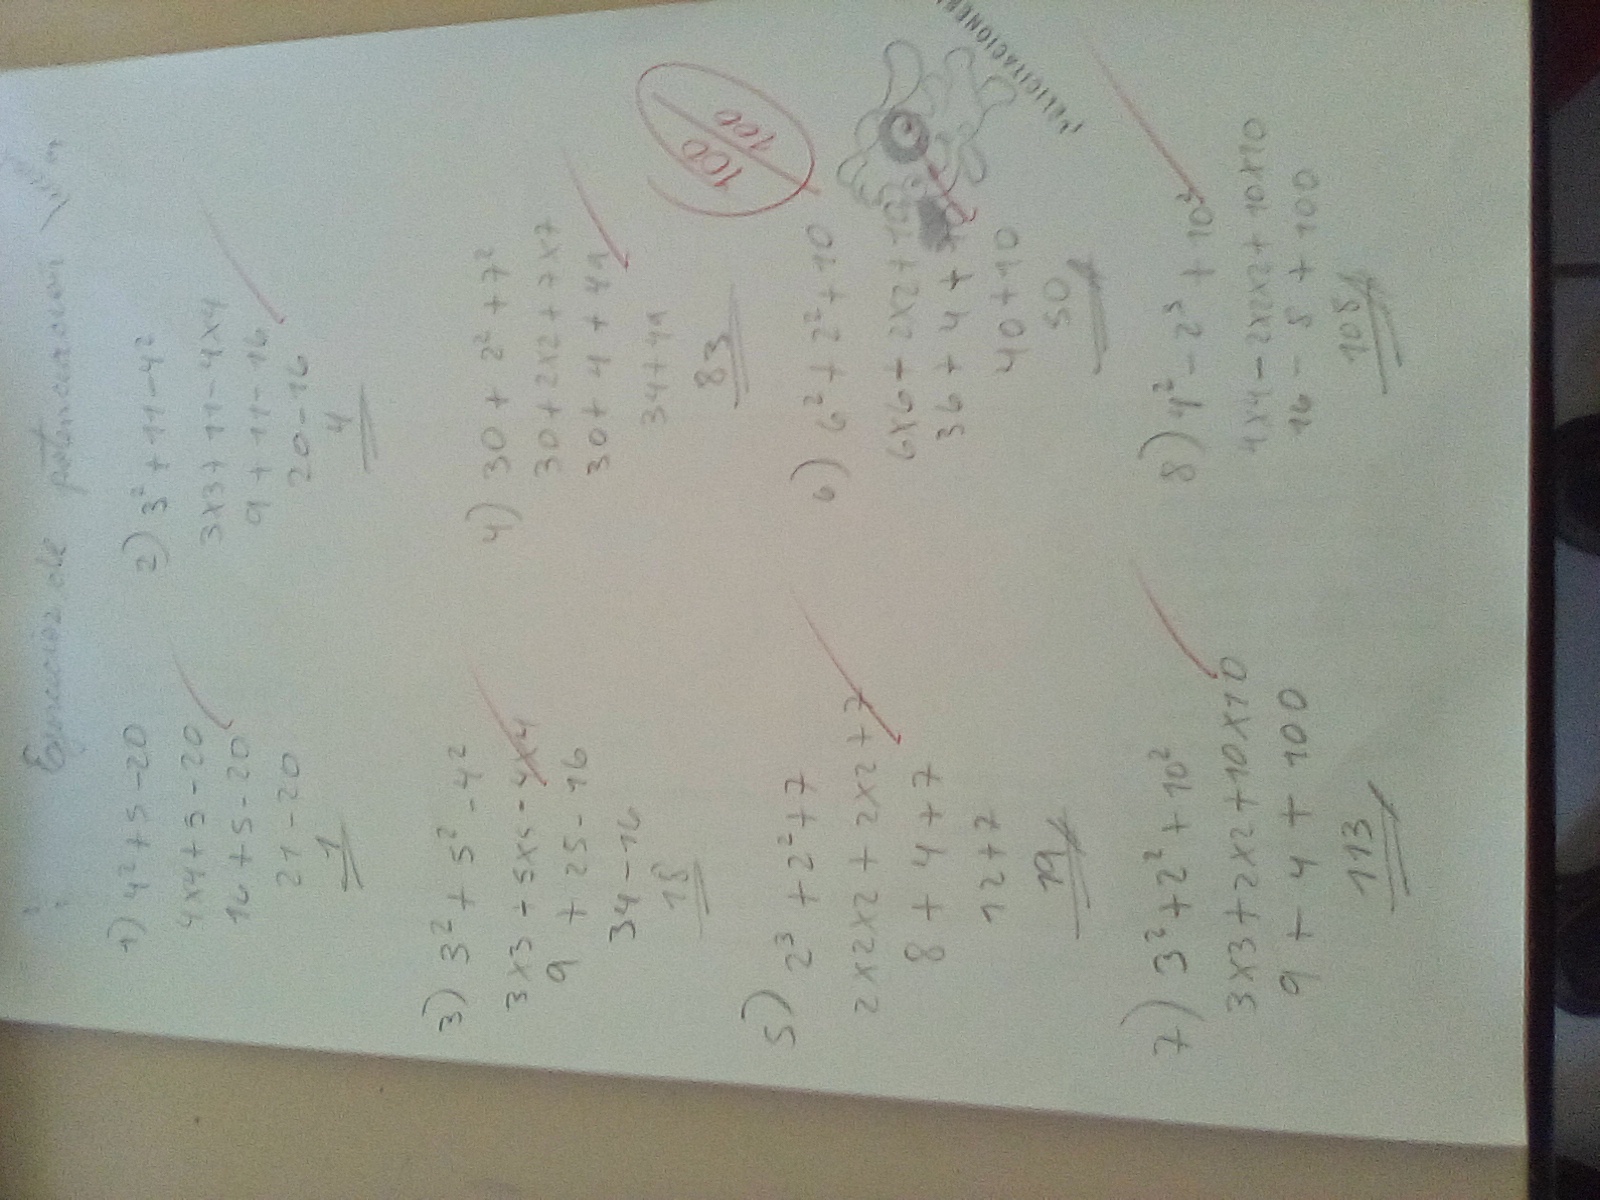 Ejercicios de potenciación
1) 4² + 5 - 20
4x4 + 5 - 20
16 + 5 - 20
21 - 20
1
2) 3² + 11 - 4²
3x3 + 11 - 4x4
9 + 11 - 16
20 - 16
4
3) 3² + 5² - 4²
3x3 + 5x5 - 4x4
9 + 25 - 16
34 - 16
18
4) 30 + 2² + 7²
30 + 2x2 + 7x7
30 + 4 + 49
34 + 49
83
100
100
5) 2³ + 2² + 7
2x2x2 + 2x2 + 7
8 + 4 + 7
12 + 7
19
6) 6² + 2² + 10
6x6 + 2x2 + 10
36 + 4 +
40 + 10
50
FELICITACIONES
7) 3² + 2² + 10²
3x3 + 2x2 + 10x10
9 + 4 + 100
113
8) 4² - 2³ + 10²
4x4 - 2x2x2 + 10x10
16 - 8 + 100
108